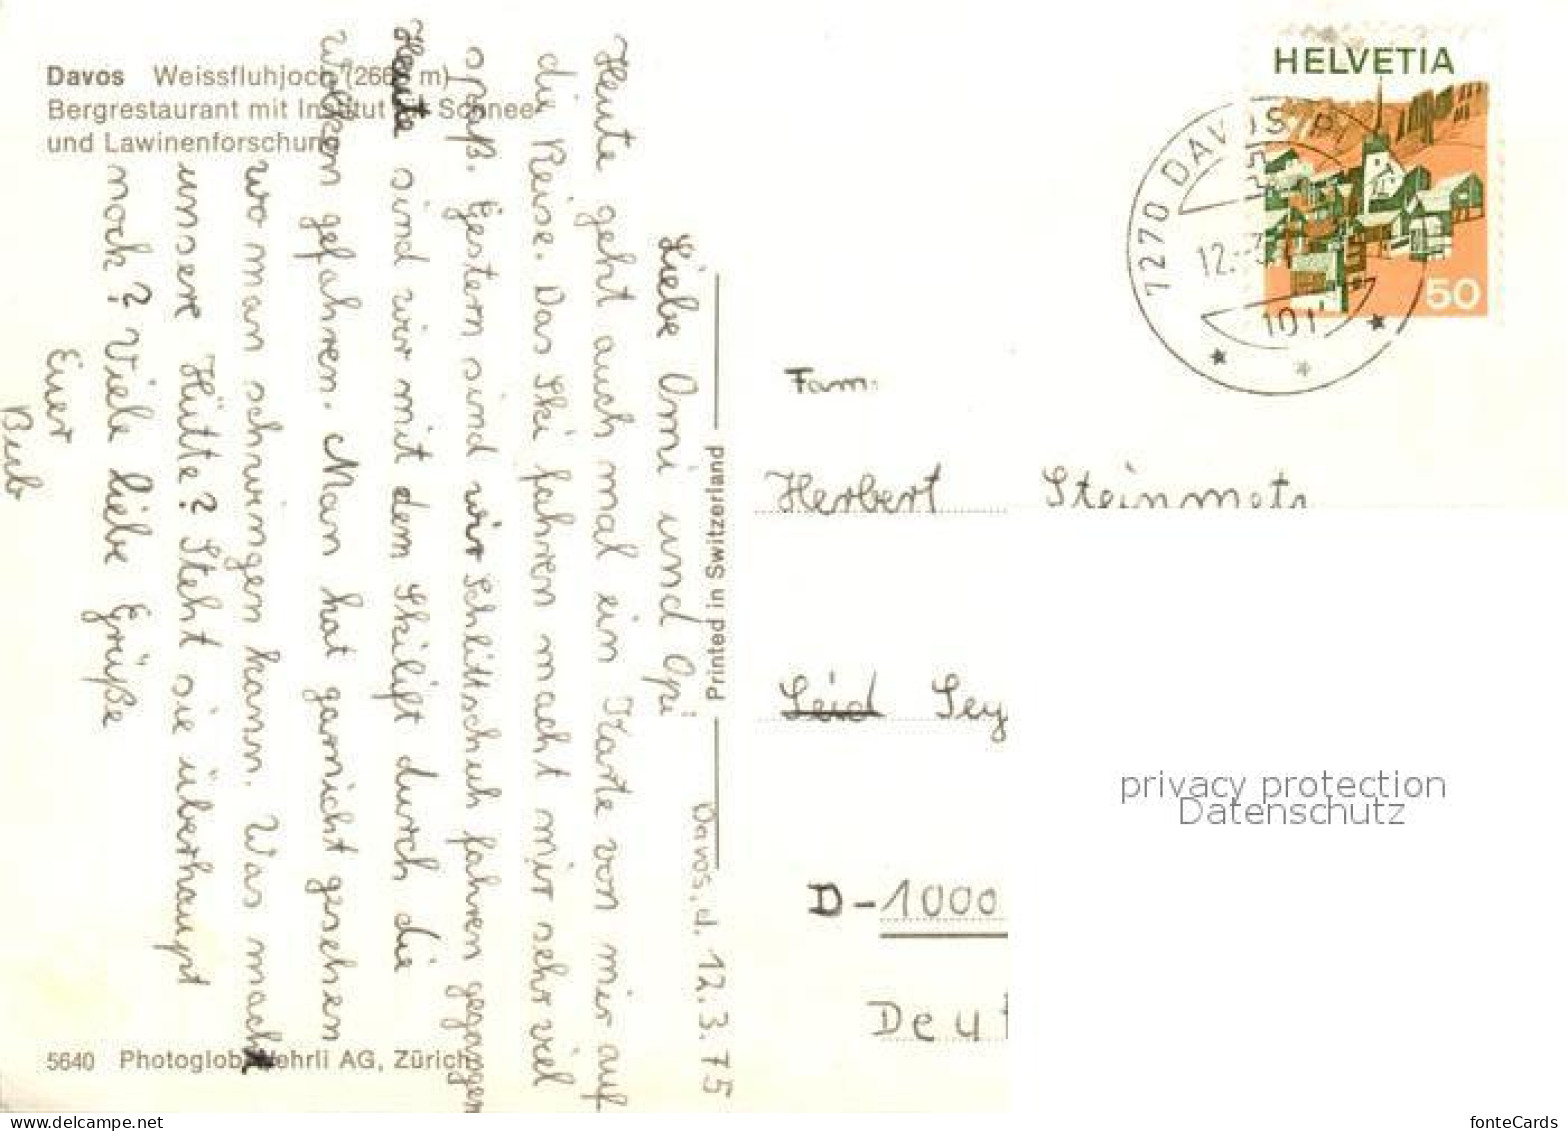 Davos Weissfluhjoch (266 m)
Bergrestaurant mit Institut Schnee-
und Lawinenforschung
Davos, d. 12.3.75
Liebe Omi und Opi
Heute geht auch mal ein Karte von mir auf
die Reise. Das Ski fahren macht mir sehr viel
spaß. Gestern sind wir Schlittschuh fahren gegangen
Heute sind wir mit dem Skilift durch die
Wolken gefahren. Man hat garnicht gesehen
wo man schwingen kann. Was macht
unsere Hütte? Steht sie überhaupt
noch? Viele liebe Grüße
Euer
5640 Photoglob-Wehrli AG, Zürich
Printed in Switzerland
HELVETIA
50
7270 DAVOS PL
12.-3.
Fam.
Herbert Steinmetz
Sey
D-1000
Deut
privacy protection
Datenschutz
www.delcampe.net
fonteCards